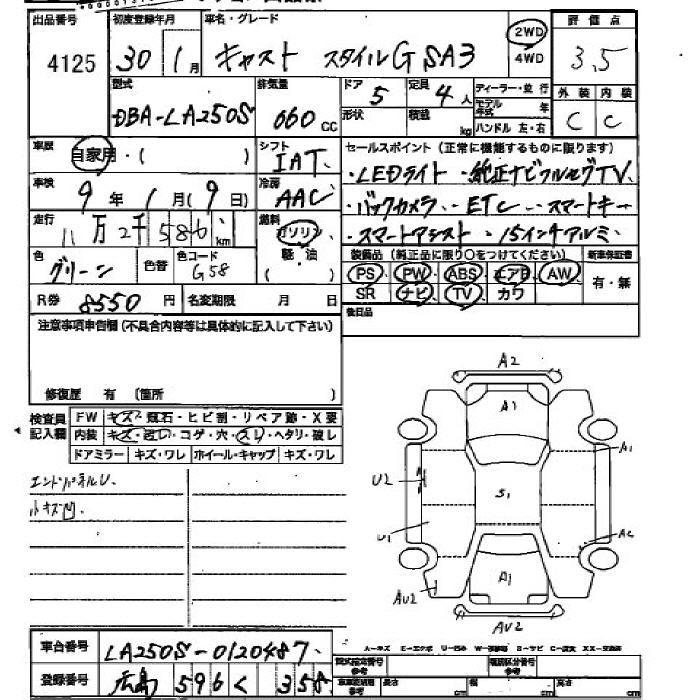 出品番号 初度登録年月 車名・グレード 評価点
4125 30 1月 キャスト スタイルG SA3 2WD 4WD 3.5
型式 排気量 ドア 5 定員 4人 ディーラー・並行 外装 内装
DBA-LA250S 660cc 形状 積載 kg モデル年式 年 ハンドル 左・右 C C
車歴 自家用・( ) シフト IAT セールスポイント(正常に機能するものに限ります)
車検 9年1月(9日) 冷房 AAC ・LEDライト ・純正ナビフルセグTV
・バックカメラ ・ETC ・スマートキー
走行 11万2千586km 燃料 ガソリン 軽油 ( ) ・スマートアシスト ・15インチアルミ
色 グリーン 色替 色コード G58 装備品(純正品に限り○をつけてください) 新車保証書
PS PW ABS エアB AW 有・無
R券 8550円 名変期限 月 日 SR ナビ TV カワ
後日品
注意事項申告欄(不具合内容等は具体的に記入して下さい)
修復歴 有 〔箇所 〕
検査員記入欄 FW キズ・飛石・ヒビ割・リペア跡・X要
内装 キズ・汚レ・コゲ・穴・スレ・ヘタリ・破レ
ドアミラー キズ・ワレ ホイール・キャップ キズ・ワレ
エンドパネルU.
小キズ凹.
A2
A1
A1
U2
S1
U1
AC
A1
AU2
AU2
A-キズ E-エクボ U-凹み
車台番号 LA250S-0120487
登録番号 広島 596 く 358
型式指定番号 参考 類別区分番号 参考
長さ cm 幅 cm 高さ cm